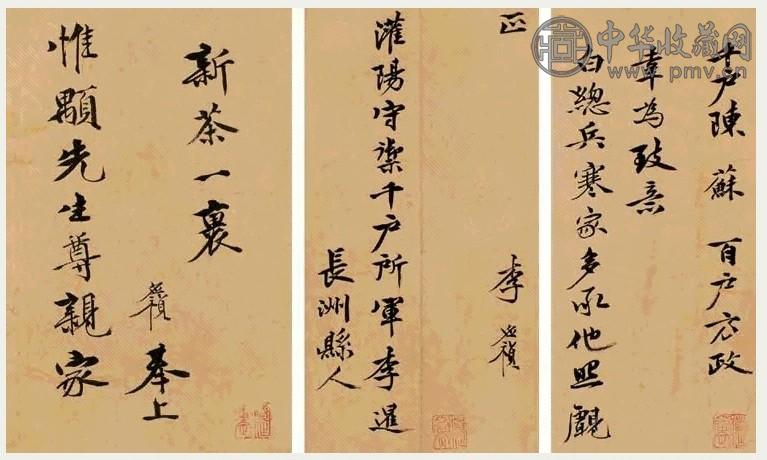 中华收藏网
www.pmv.cn
千户陳 蘇 百户方政
幸為致意
白總兵寒家多承他照覷
正 李應禎
灌陽守禦千户所軍李暹
長洲縣人
新茶一裹
應禎 奉上
惟顒先生尊親家